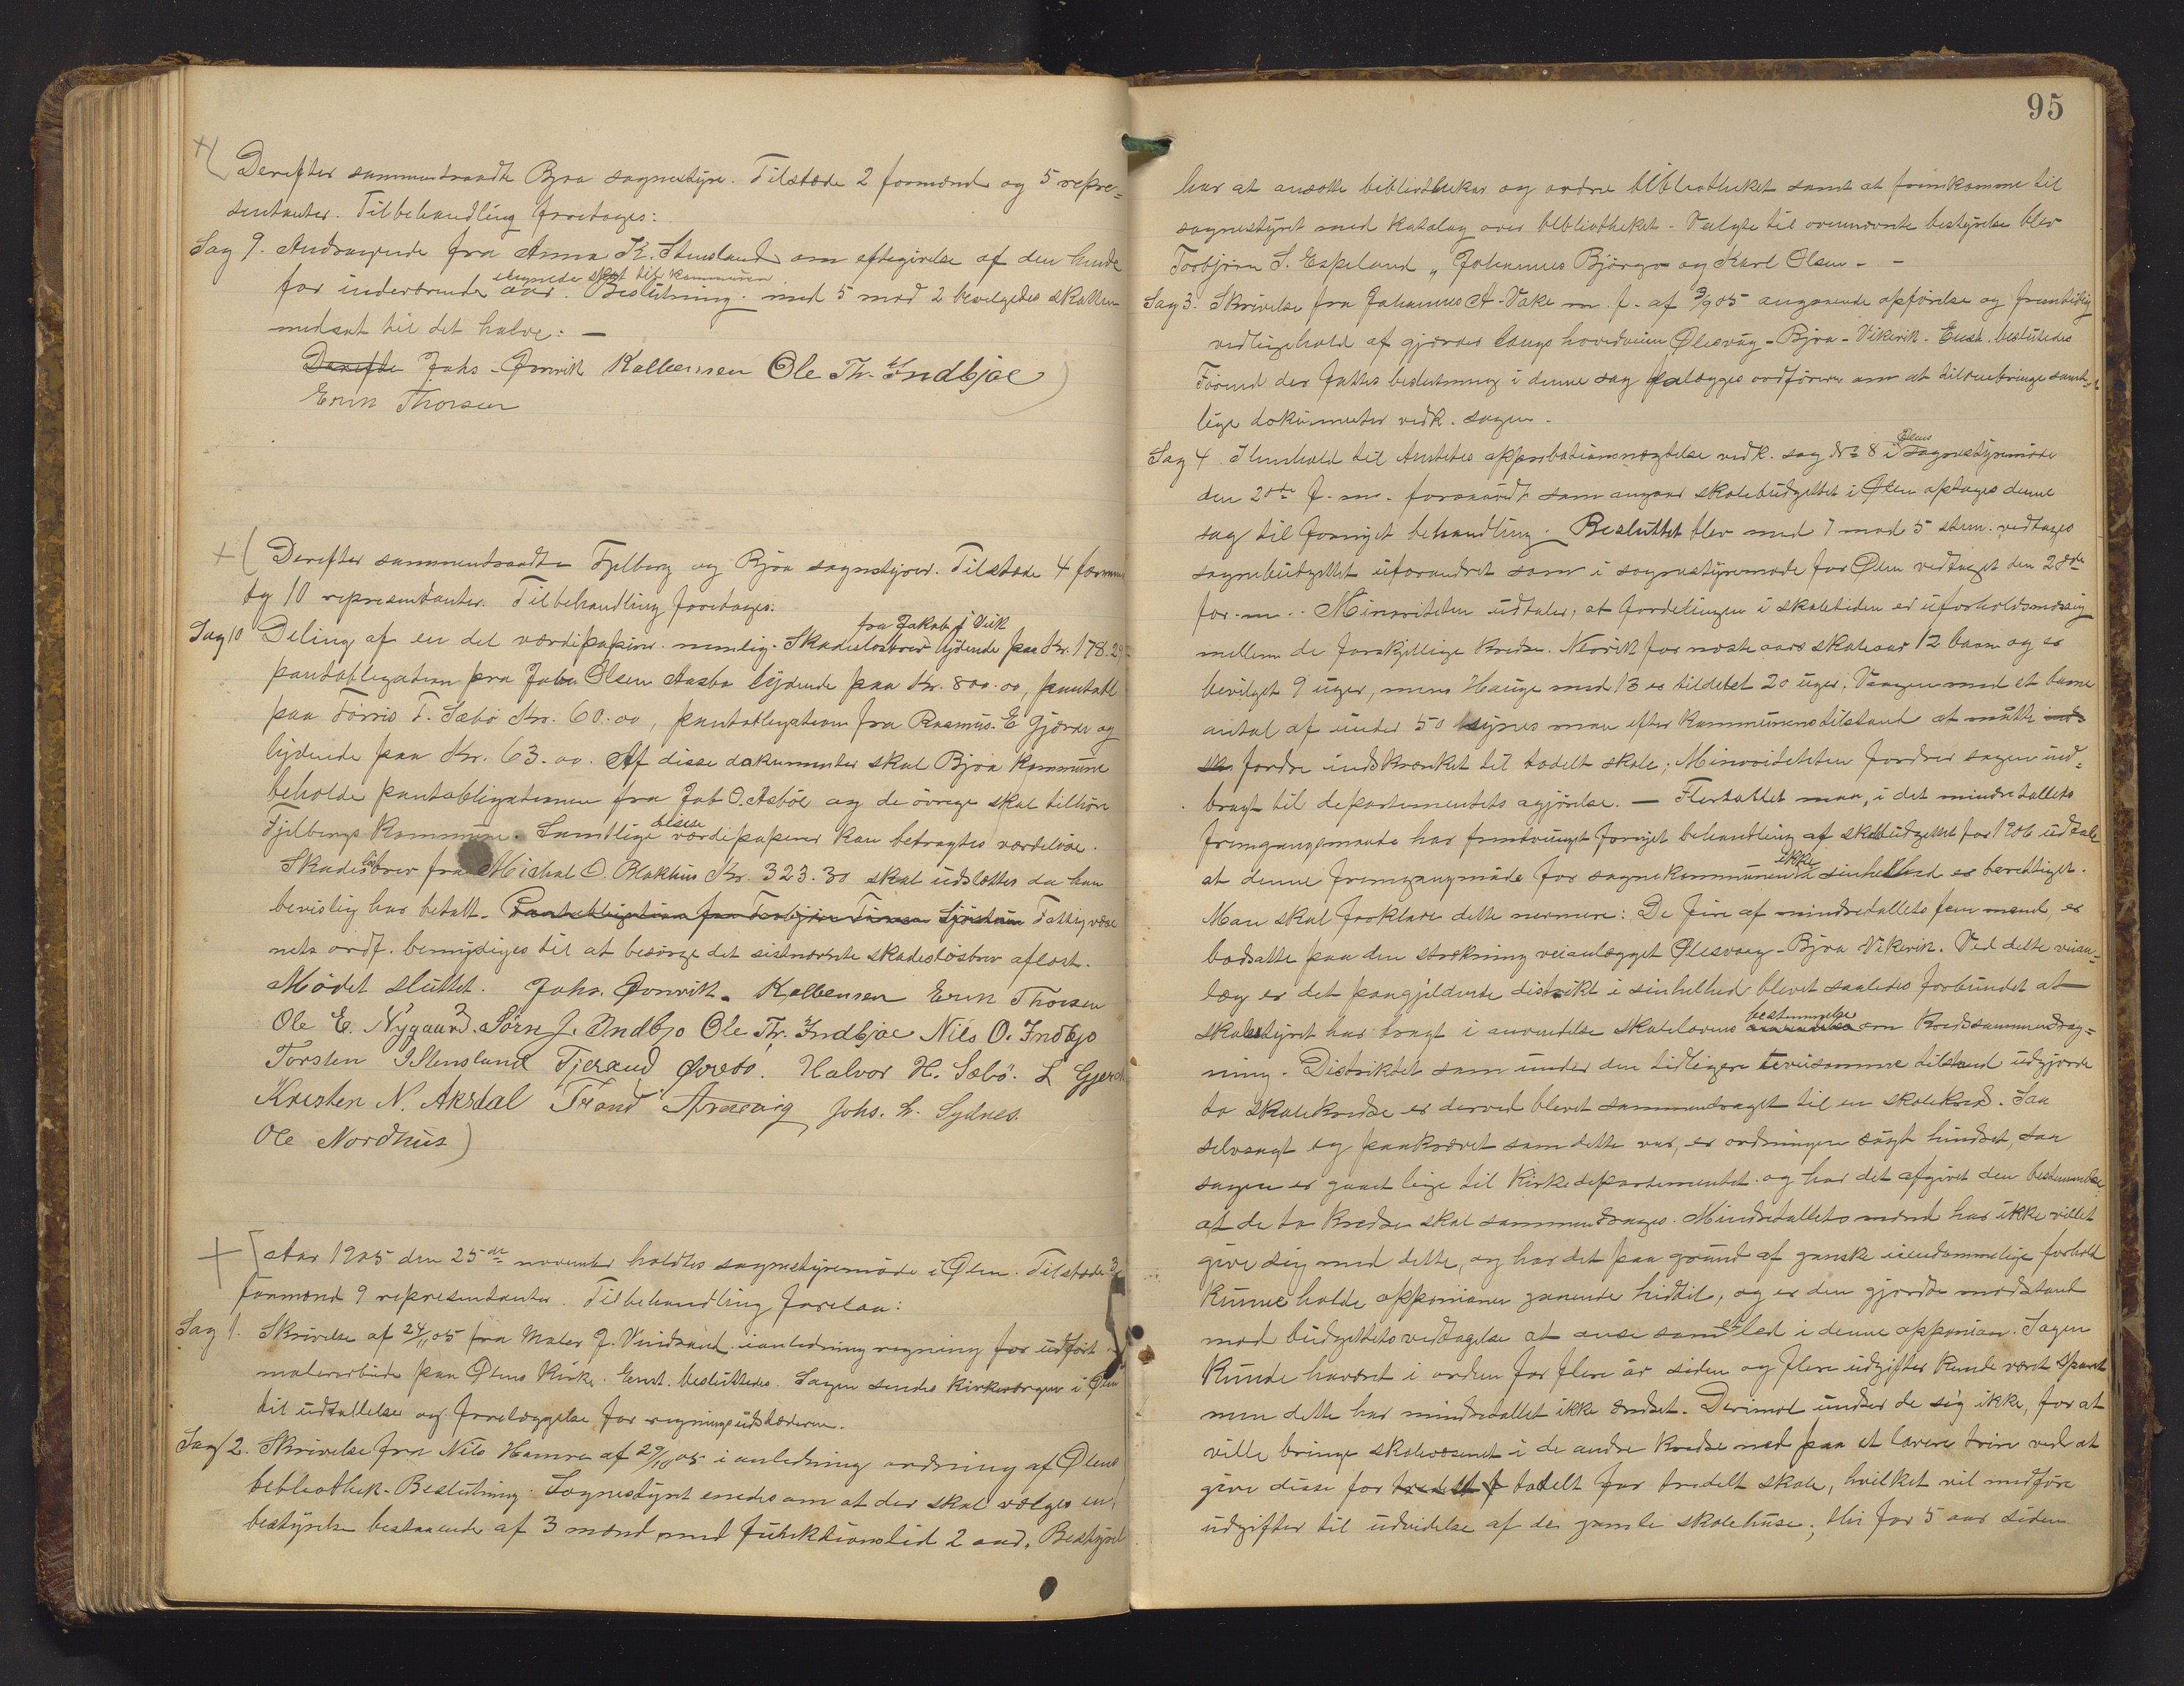 Derefter sammentraadte Bjoa sognestyre. Tilstede 2 formænd og 5 repre=
sentanter. Til behandling foretoges:
Sag 9. Andragende fra Anna K. Stensland om eftergivelse af den hende
ilignede skat til kommunen
for inderværende aar. Beslutning. med 5 mod 2 bevilgedes skatten
nedsat til det halve. —
Derefte Johs. Øvrevik Kolbensen Ole Th. Indbjoe
Erik Thorsen
Derefter sammentraadte Fjelberg og Bjoa sognestyrer. Tilstede 4 formænd
og 10 representanter. Til behandling foretoges:
fra Jakob J Vik
Sag 10 Deling af en del værdipapirer nemlig. Skadesløsbrev lydende paa Kr. 178.29
pantobligation fra Jakob Olsen Aasbø lydende paa Kr. 800.00, pantobl
paa Tørris T. Sæbø Kr. 60.00, pantobligation fra Rasmus E Gjærde og
lydende paa Kr. 63.00. Af disse dokumenter skal Bjoa kommune
beholde pantobligationen fra Jab O. Asbøe og de övrige skal tilhøre
Fjelbergs kommune. Samtlige disse værdipapirer kan betragtes værdeløse.
Skadesløsbrev fra Michal O. Blokhus Kr. 323.30 skal udslettes da han
bevislig har betalt. Pantobligation fra Torbjørn Tinnes Sjøstrim Fattigvæse
nets ordf. bemyndiges til at besørge det sistnevnte skadesløsbrev aflæst.
Mødet sluttet. Johs. Øvrevik. Kolbensen Erik Thorsen
Ole E. Nygaard. Sørn J. Indbjo Ole Th. Indbjoe Nils O. Indbjo
Torsten I Stensland Tjerand Øvrebø. Halvor H. Sæbö. L Gjerde
Kristen N. Aksdal Trond Johs. L. Sydnes.
Ole Nordhus
Aar 1905 den 25de november holdtes sognestyremöde i Ølen. Tilstede 3
formænd 9 representanter. Til behandling forelaa:
Sag 1. Skrivelse af 24/11 05 fra Maler J. Vindsand i anledning regning for udført
malerarbeide paa Ølens kirke. Enst. besluttedes. Sagen sendes kirkeværgen i Ølen
til udtallelse og forelæggelse for regningsudstæderen.
Sag 2. Skrivelse fra Nils Hamre af 29/10 05 i anledning ordning af Ølens
bebliothek. Beslutning. Sognestyret enedes om at der skal vælges en
bestyrelse bestaaende af 3 mænd med funktionstid 2 aar. Bestyrel
95
har at ansætte bibliothekar og ordne bibliotheket samt at fremkomme til
sognestyret med katalog over bebliotheket. Valgte til ovennevnte bestyrelse blev
Torbjörn S. Espeland, Johannes Björgo og Karl Olsen. -
Sag 3. Skrivelse fra Johannes A. Vake m. fl. af 3/9 05 angaaende opførelse og fremtidig
vedligehold af gjærder langs hovedveien Ølesvåg - Bjoa - Vikevik. Enst. besluttedes
Förend der fattes beslutning i denne sag paalægges ordføreren om at tilveiebringe samt=
lige dokumenter vedk. sagen.
Sag 4 I henhold til Amtets approbationsnægtelse vedk. sag No 8 i Ølens sognestyremöde
den 28de f. m. forsaavidt som angaar skolebudgettet i Ølen optages denne
sag til fornyet behandling. Besluttet blev med 7 mod 5 stem. vedtages
sognebudgettet uforandret som i sognestyremøde for Ølen vedtaget den 28de
for. m. Minoriteten udtaler, at fordelingen i skoletiden er uforholdsmæssig
mellem de forskjellige kredse. Nervik for næste aars skoleaar 12 barn og er
bevilget 9 uger, mens Hauge med 13 er tildelet 20 uger. Vaagen med et barne
antal af under 50 synes man efter kommunens tilstand at måtte ind=
sk. fordre indskrænket til todelt skole; Minoriteten fordrer sagen ind=
bragt til departementets afgjörelse. — Flertallet maa, i det mindretallets
fremgangsmaate har fremtvunget fornyet behandling af skolebudgettet for 1906 udtale
at denne fremgangmåde for sognekommunen i sinhelhed ikke er berettiget.
Man skal forklare dette nermere: De fire af mindretallets fem mænd, er
bosatte paa den strekning veianlægget Ølesvaag - Bjoa Vikevik. Ved dette veian=
læg er det paagjeldende distrikt i sinhelhed blevet saaledes forbundet at
skolestyret har bragt i anvendelse skolelovens bestemmelse om kredssammendrag=
ning. Distriktet som under den tidligere veiløse tilstand udgjorde
to skolekredse er derved blevet sammendraget til en skolekreds. Saa
selvsagt og paakrævet som dette var, er ordningen søgt hindret, saa
sagen er gaaet lige til Kirkedepartementet og har det afgivet den bestemmelse
at de to kredse skal sammendrages. Mindretallets mænd har ikke villet
give sig med dette, og har det paa grund af ganske eiendommelige forhold
kunne holde opponionen gaaende hidtil, og er den gjorde modstand
mod budgettets vedtagelse at anse som et led i denne opponian. Sagen
kunde haværet i orden for flere år siden og flere udgifter kunde været sparet
men dette har mindretallet ikke ændset. Derimod undser de sig ikke, for at
ville bringe skolevæsenet i de andre kredse ned paa et lavere trin ved at
give disse for todelt for tredelt skole, hvilket vil medføre
udgifter til udvidelse af de gamle skolehuse; thi for 5 aar siden